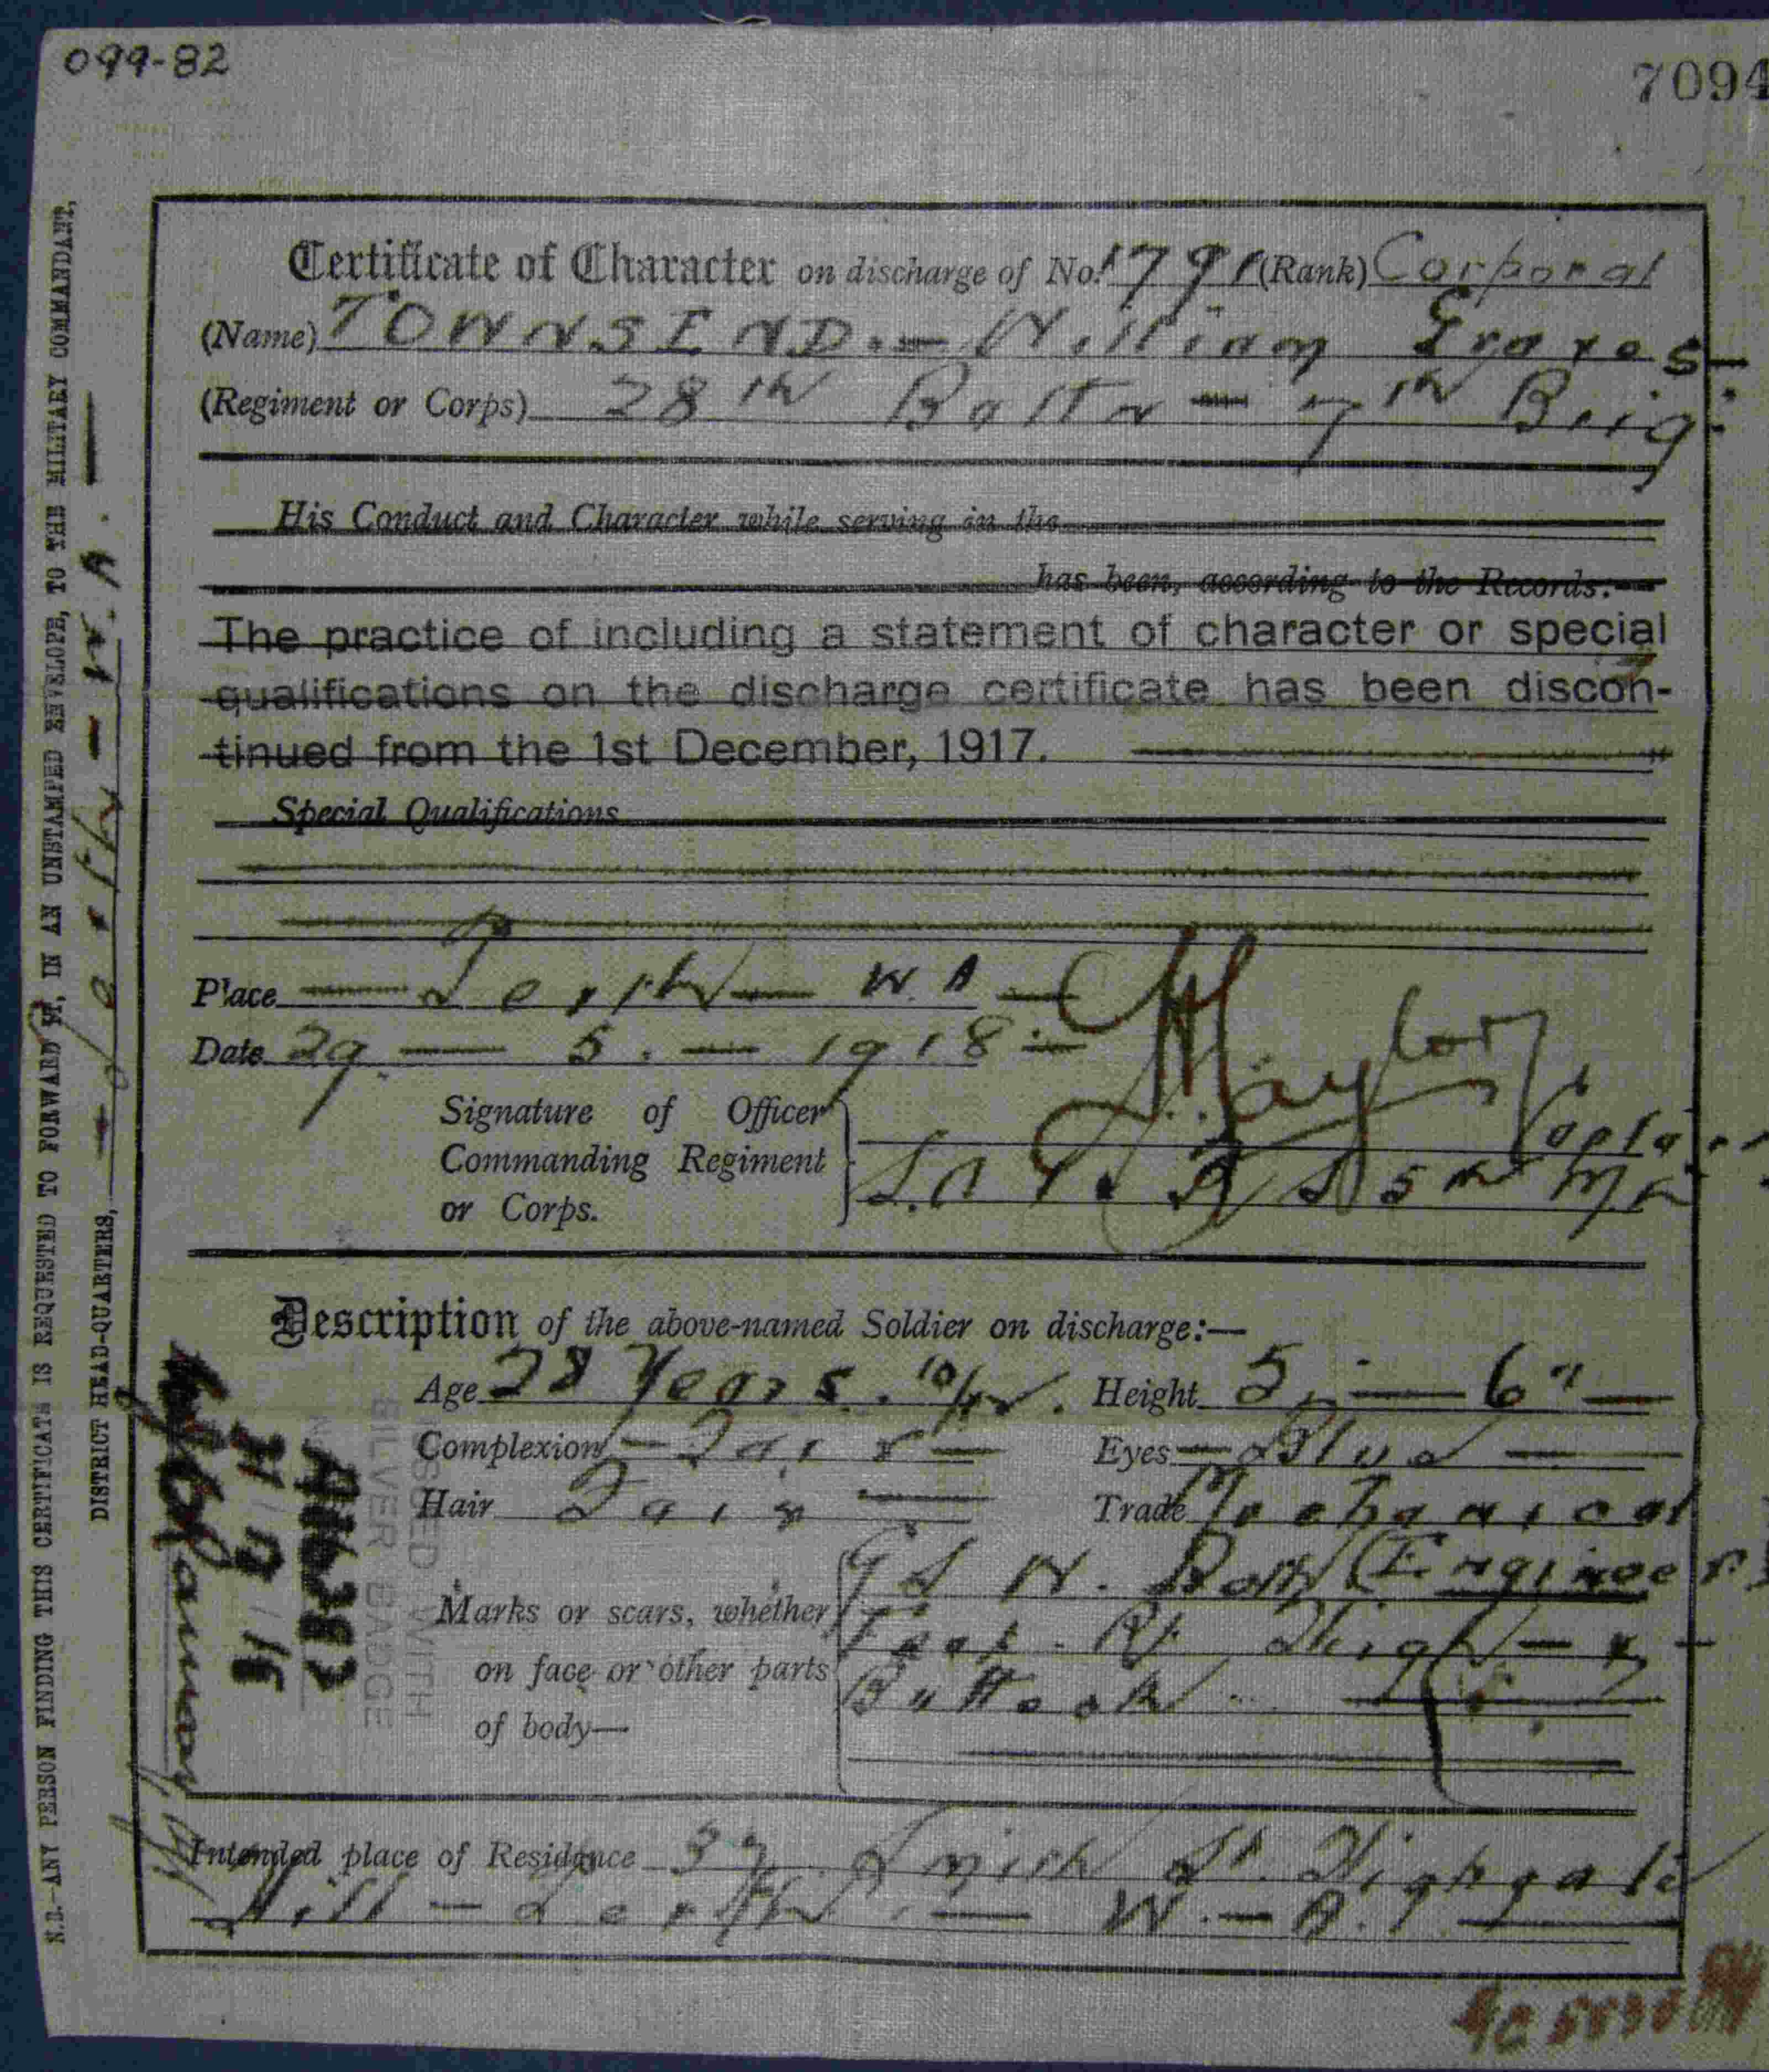 099-82
7094
Certificate of Character on discharge of No. 1791 (Rank) Corporal
(Name) TOWNSEND.- William
(Regiment or Corps) 28th Battn - 7th Brig:
His Conduct and Character while serving in the
has been, according to the Records:-
The practice of including a statement of character or special
qualifications on the discharge certificate has been discon-
tinued from the 1st December, 1917.
Special Qualifications
Place - Perth - W.A -
Date 29 - 5. - 1918 -
Signature of Officer
Commanding Regiment
or Corps.
Description of the above-named Soldier on discharge:—
Age 28 Years. 10/12. Height 5' - 6" -
Complexion - Fair - Eyes - Blue -
Hair Fair - Trade Mechanical
G S W. Both (Engineer)
Marks or scars, whether
on face or other parts
of body—
Feet. Rt. Thigh -
Buttock
Intended place of Residence 37 Smith St. Highgate
Hill - Perth. - W.-A.
N.B.—ANY PERSON FINDING THIS CERTIFICATE IS REQUESTED TO FORWARD IT, IN AN UNSTAMPED ENVELOPE, TO THE MILITARY COMMANDANT,
DISTRICT HEAD-QUARTERS, - Perth - W.A. -
ISSUED WITH
SILVER BADGE